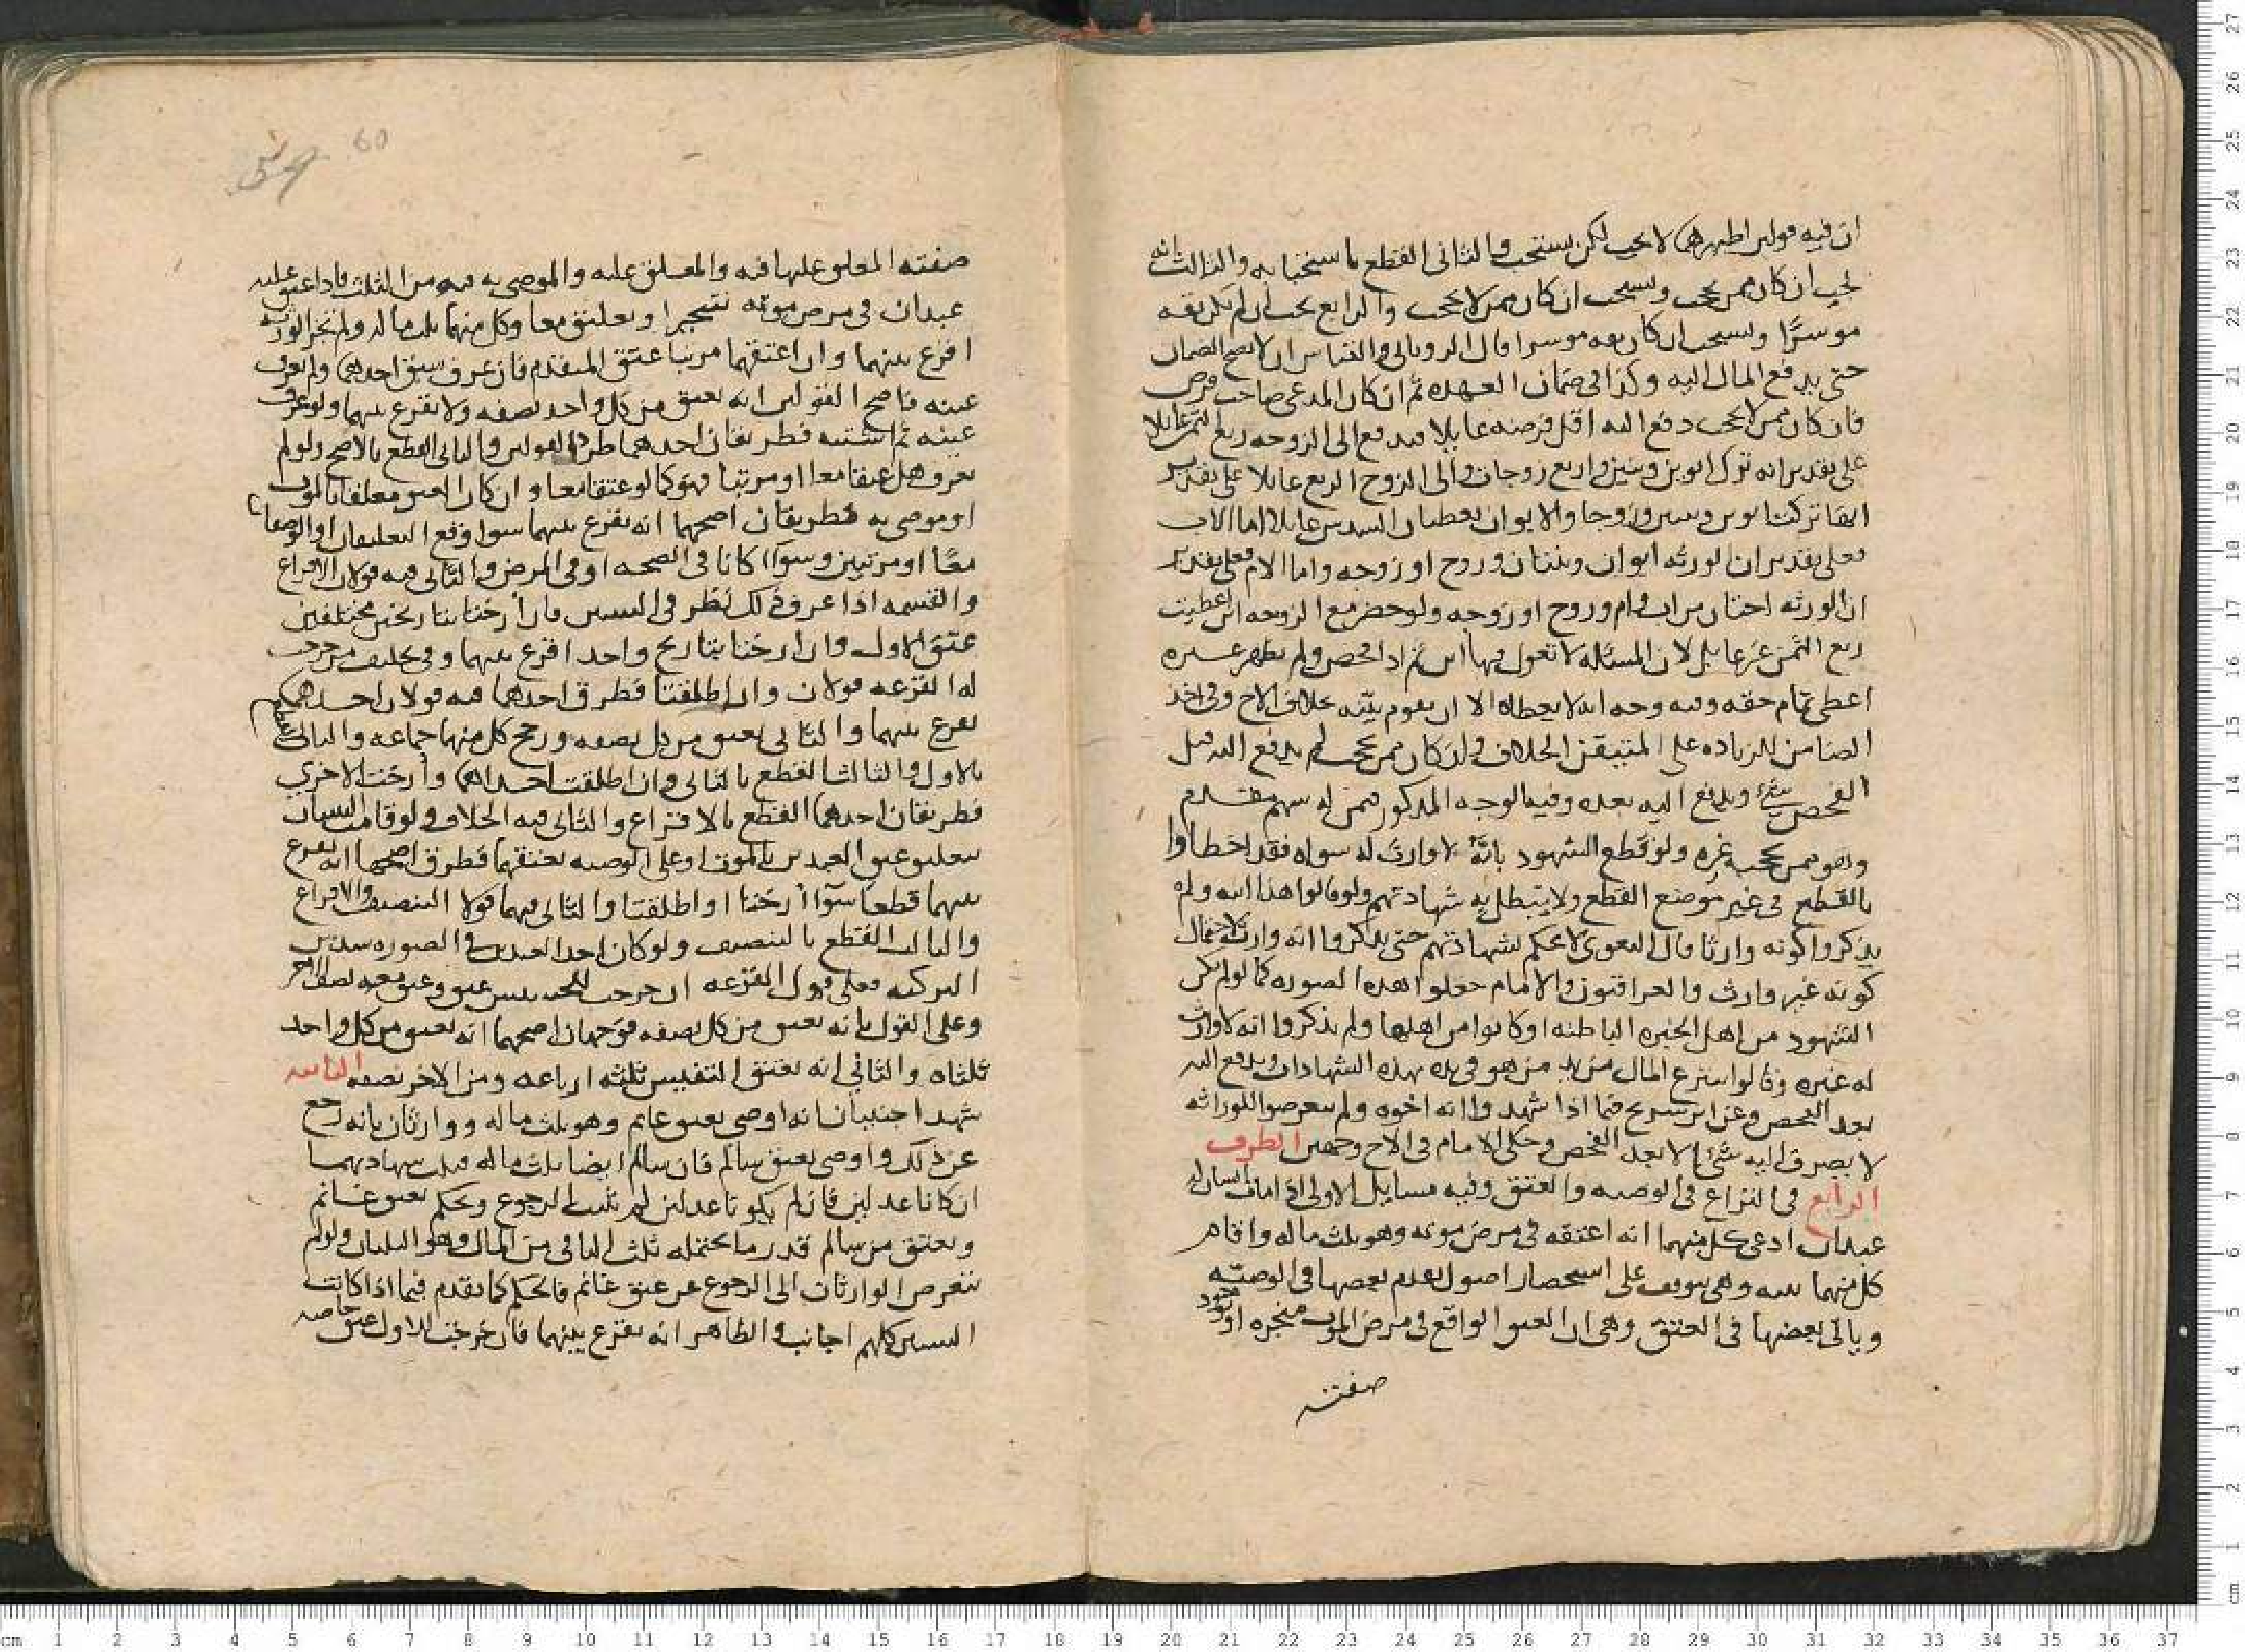 ان فيه قولين اظهرهما لا يجب لكن يستحب والثانى القطع باستحبابه والثالث انه
يجب ان كان ممن يحجب ويستحب ان كان ممن لا يحجب والرابع يجب ان لم يكن ثقه
موسرًا ويستحب ان كان ثقه موسرا قال الرويانى والقياس ان لا يصح الضمان
حتى يدفع المال اليه وكذا فى ضمان العهده ثم ان كان المدعى صاحب فرض
فان كان ممن لا يحجب دفع اليه اقل فرضه عايلا فيدفع الى الزوجه ربع الثمن عايلا
على تقدير انه ترك ابوين وبنتين واربع زوجات والى الزوج الربع عايلا على تقدير
انها تركت ابوين وبنتين وزوجا والابوان يعطيان السدس عايلا اما الاب
فعلى تقدير ان الورثه ابوان وبنتان وزوج او زوجه واما الام فعلى تقدير
ان الورثه اختان من اب وام وزوج او زوجه ولو حضر مع الزوجه ابن اعطيت
ربع الثمن غير عايل لان المسئله لا تعول وفيها ابن ثم اذا فحص ولم يظهر غيره
اعطى تمام حقه وفيه وجه انه لا يعطاه الا ان يقوم بينه بخلاف الاخ وفى اخذ
الضامن للزياده على المتيقن الخلاف وان كان ممن يحجب لم يدفع اليه قبل
الفحص شئ ويدفع اليه بعده وفيه الوجه المذكور فيمن له سهم مقدم
وهو ممن يحجبه غيره ولو قطع الشهود بانه لا وارث له سواه فقد اخطاوا
بالقطع فى غير موضع القطع ولا يبطل به شهادتهم ولو قالوا هذا ابنه ولم
يذكروا كونه وارثا قال البغوى لا يحكم بشهادتهم حتى يذكروا انه وارثه لاحتمال
كونه غير وارث والعراقيون والامام جعلوا هذه الصوره كما لو لم يكن
الشهود من اهل الخبره الباطنه او كانوا من اهلها ولم يذكروا انه لا وارث
له غيره وقالوا ينتزع المال من يد من هو فى يده بهذه الشهادات ويدفع اليه
بعد الفحص وعن ابن سريج فيما اذا شهدوا انه اخوه ولم يتعرضوا للوراثه
لا يصرف اليه شئ الا بعد الفحص وحكى الامام فى الاخ وجهين الطرف
الرابع فى النزاع فى الوصيه والعتق وفيه مسايل الاولى اذا مات انسان له
عبدان ادعى كل منهما انه اعتقه فى مرض موته وهو ثلث ماله واقام
كل منهما بينه وهى يتوقف على استحضار اصول تقدم بعضها فى الوصيه
وياتى بعضها فى العتق وهى ان العتق الواقع فى مرض الموت منجزه او توجد
صفته
60
صفته المعلق عليها فيه والمعلق عليه والموصى به فيه من الثلث فاذا اعتق عليه
عبدان فى مرض موته تنجيزا او تعليق معا وكل منهما ثلث ماله ولم يجز الورثه
اقرع بينهما وان اعتقهما مرتبا عتق المتقدم فان عرف سبق احدهما ولم يعرف
عينه فاصح القولين انه يعتق من كل واحد نصفه ولا يقرع بينهما ولو عرف
عينه ثم اشتبه فطريقان احدهما طرد القولين والثانى القطع بالاصح ولو لم
يعرف هل عتقا معا او مرتبا فهو كما لو عتقا معا وان كان العتق معلقا بالموت
او موصى به فطريقان اصحهما انه يقرع بينهما سوا وقع التعليقان او الوصيتان
معًا او مرتبين وسوآا كانا فى الصحه او فى المرض والثانى فيه قولان الاقراع
والقسمه اذا عرف ذلك نظر فى البينتين فان أرختا بتاريخين مختلفين
عتق الاول وان ارختا بتاريخ واحد اقرع بينهما وفى تحليف من خرجت
له القرعه قولان وان اطلقتا فطرق احدها فيه قولان احدهما
يقرع بينهما والثانى يعتق من كل نصفه ورجح كل منهما جماعه والثانى القطع
بالاول والثالث القطع بالثانى وان اطلقت احداهما وأرخت الاخرى
فطريقان احدهما القطع بالاقتراع والثانى فيه الخلاف ولو قامت البينتان
بتعليق عتق العبدين بالموت او على الوصيه بعتقهما فطرق اصحها انه يقرع
بينهما قطعا سوآا أرختا او اطلقتا والثانى فيهما قولا التنصيف والاقراع
والثالث القطع بالتنصيف ولو كان احد العبدين فى الصوره سدس
التركه فعلى قول القرعه ان خرجت للخسيس عتق وعتق معه نصف الاخر
وعلى القول بانه يعتق من كل نصفه فوجهان اصحهما انه يعتق من كل واحد
ثلثاه والثانى انه يعتق النفيس ثلثه ارباعه ومن الاخر نصفه الثانيه
شهد اجنبيان انه اوصى بعتق غانم وهو ثلث ماله ووارثان بانه رجع
عن ذلك واوصى بعتق سالم فان سالم ايضا ثلث ماله قبلت شهادتهما
ان كانا عدلين فان لم يكونا عدلين لم يثبت الرجوع ويحكم بعتق غانم
ويعتق من سالم قدر ما يحتمله ثلث الباقى من المال وهو الثلثان ولو لم
يتعرض الوارثان الى الرجوع عن عتق غانم فالحكم كما تقدم فيما اذا كانت
البينتين كلهم اجانب والظاهر انه يقرع بينهما فان خرجت للاول عتق خاصه